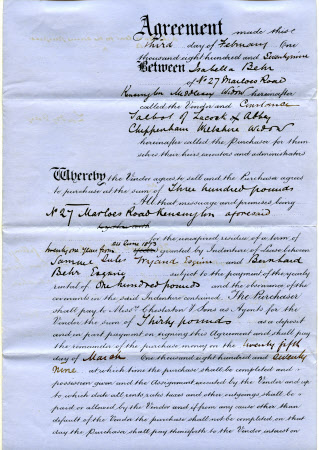 Agreement made this
Third day of February One
thousand eight hundred and Seventynine
Between Isabella Behr
of No 27 Marloes Road
Kensington Middlesex Widow hereinafter
called the Vendor and Constance
Talbot of Lacock Abbey
Chippenham Wiltshire Widow
hereinafter called the Purchaser for them
selves their heirs executors and administrators
Whereby the Vendor agrees to sell and the Purchaser agrees
to purchase at the sum of Three hundred pounds
All that messuage and premises being
No 27 Marloes Road Kensington aforesaid
for the unexpired residue of a term of
twenty one years from June 1873 granted by Indenture of Lease between
Samuel Esquire and Bernhard
Behr Esquire subject to the payment of the yearly
rental of One hundred pounds and the observance of the
covenants in the said Indenture contained. The Purchaser
shall pay to Messrs Chesterton & Sons as Agents for the
Vendor the sum of Thirty pounds as a deposit
and in part payment on signing this Agreement and shall pay
the remainder of the purchase money on the twenty fifth
day of March One thousand eight hundred and seventy
nine at which time the purchase shall be completed and
possession given and the Assignment executed by the Vendor and up
to which date all rents rates taxes and other outgoings shall be
paid or allowed by the Vendor and if from any cause other than
default of the Vendor the purchase shall not be completed on that
day the Purchaser shall pay thenceforth to the Vendor interest on